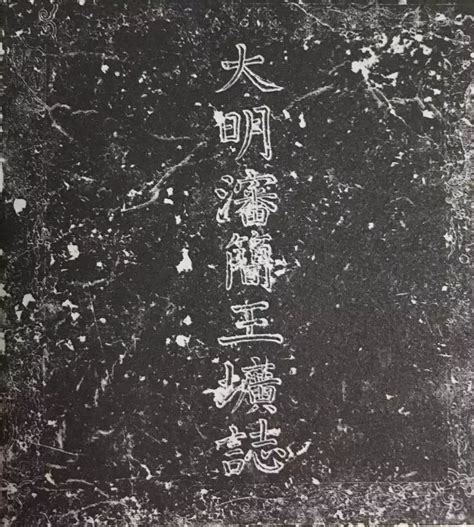 大明瀋簡王壙誌